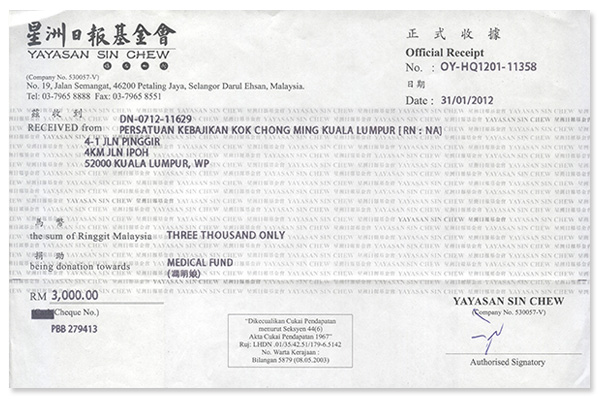 星洲日報基金會
YAYASAN SIN CHEW
(Company No. 530057-V)
No. 19, Jalan Semangat, 46200 Petaling Jaya, Selangor Darul Ehsan, Malaysia.
Tel: 03-7965 8888 Fax: 03-7965 8551
正式收據
Official Receipt
No. : OY-HQ1201-11358
日期
Date : 31/01/2012
茲收到
DN-0712-11629
RECEIVED from PERSATUAN KEBAJIKAN KOK CHONG MING KUALA LUMPUR [RN : NA]
4-1 JLN PINGGIR
4KM JLN IPOH
52000 KUALA LUMPUR, WP
馬幣
the sum of Ringgit Malaysia THREE THOUSAND ONLY
捐助
being donation towards MEDICAL FUND
RM 3,000.00
Cheque No.)
PBB 279413
"Dikecualikan Cukai Pendapatan
menurut Seksyen 44(6)
Akta Cukai Pendapatan 1967"
Ruj: LHDN .01/35.42.51/179-6.5142
No. Warta Kerajaan :
Bilangan 5879 (08.05.2003)
YAYASAN SIN CHEW
(Company No. 530057-V)
Authorised Signatory